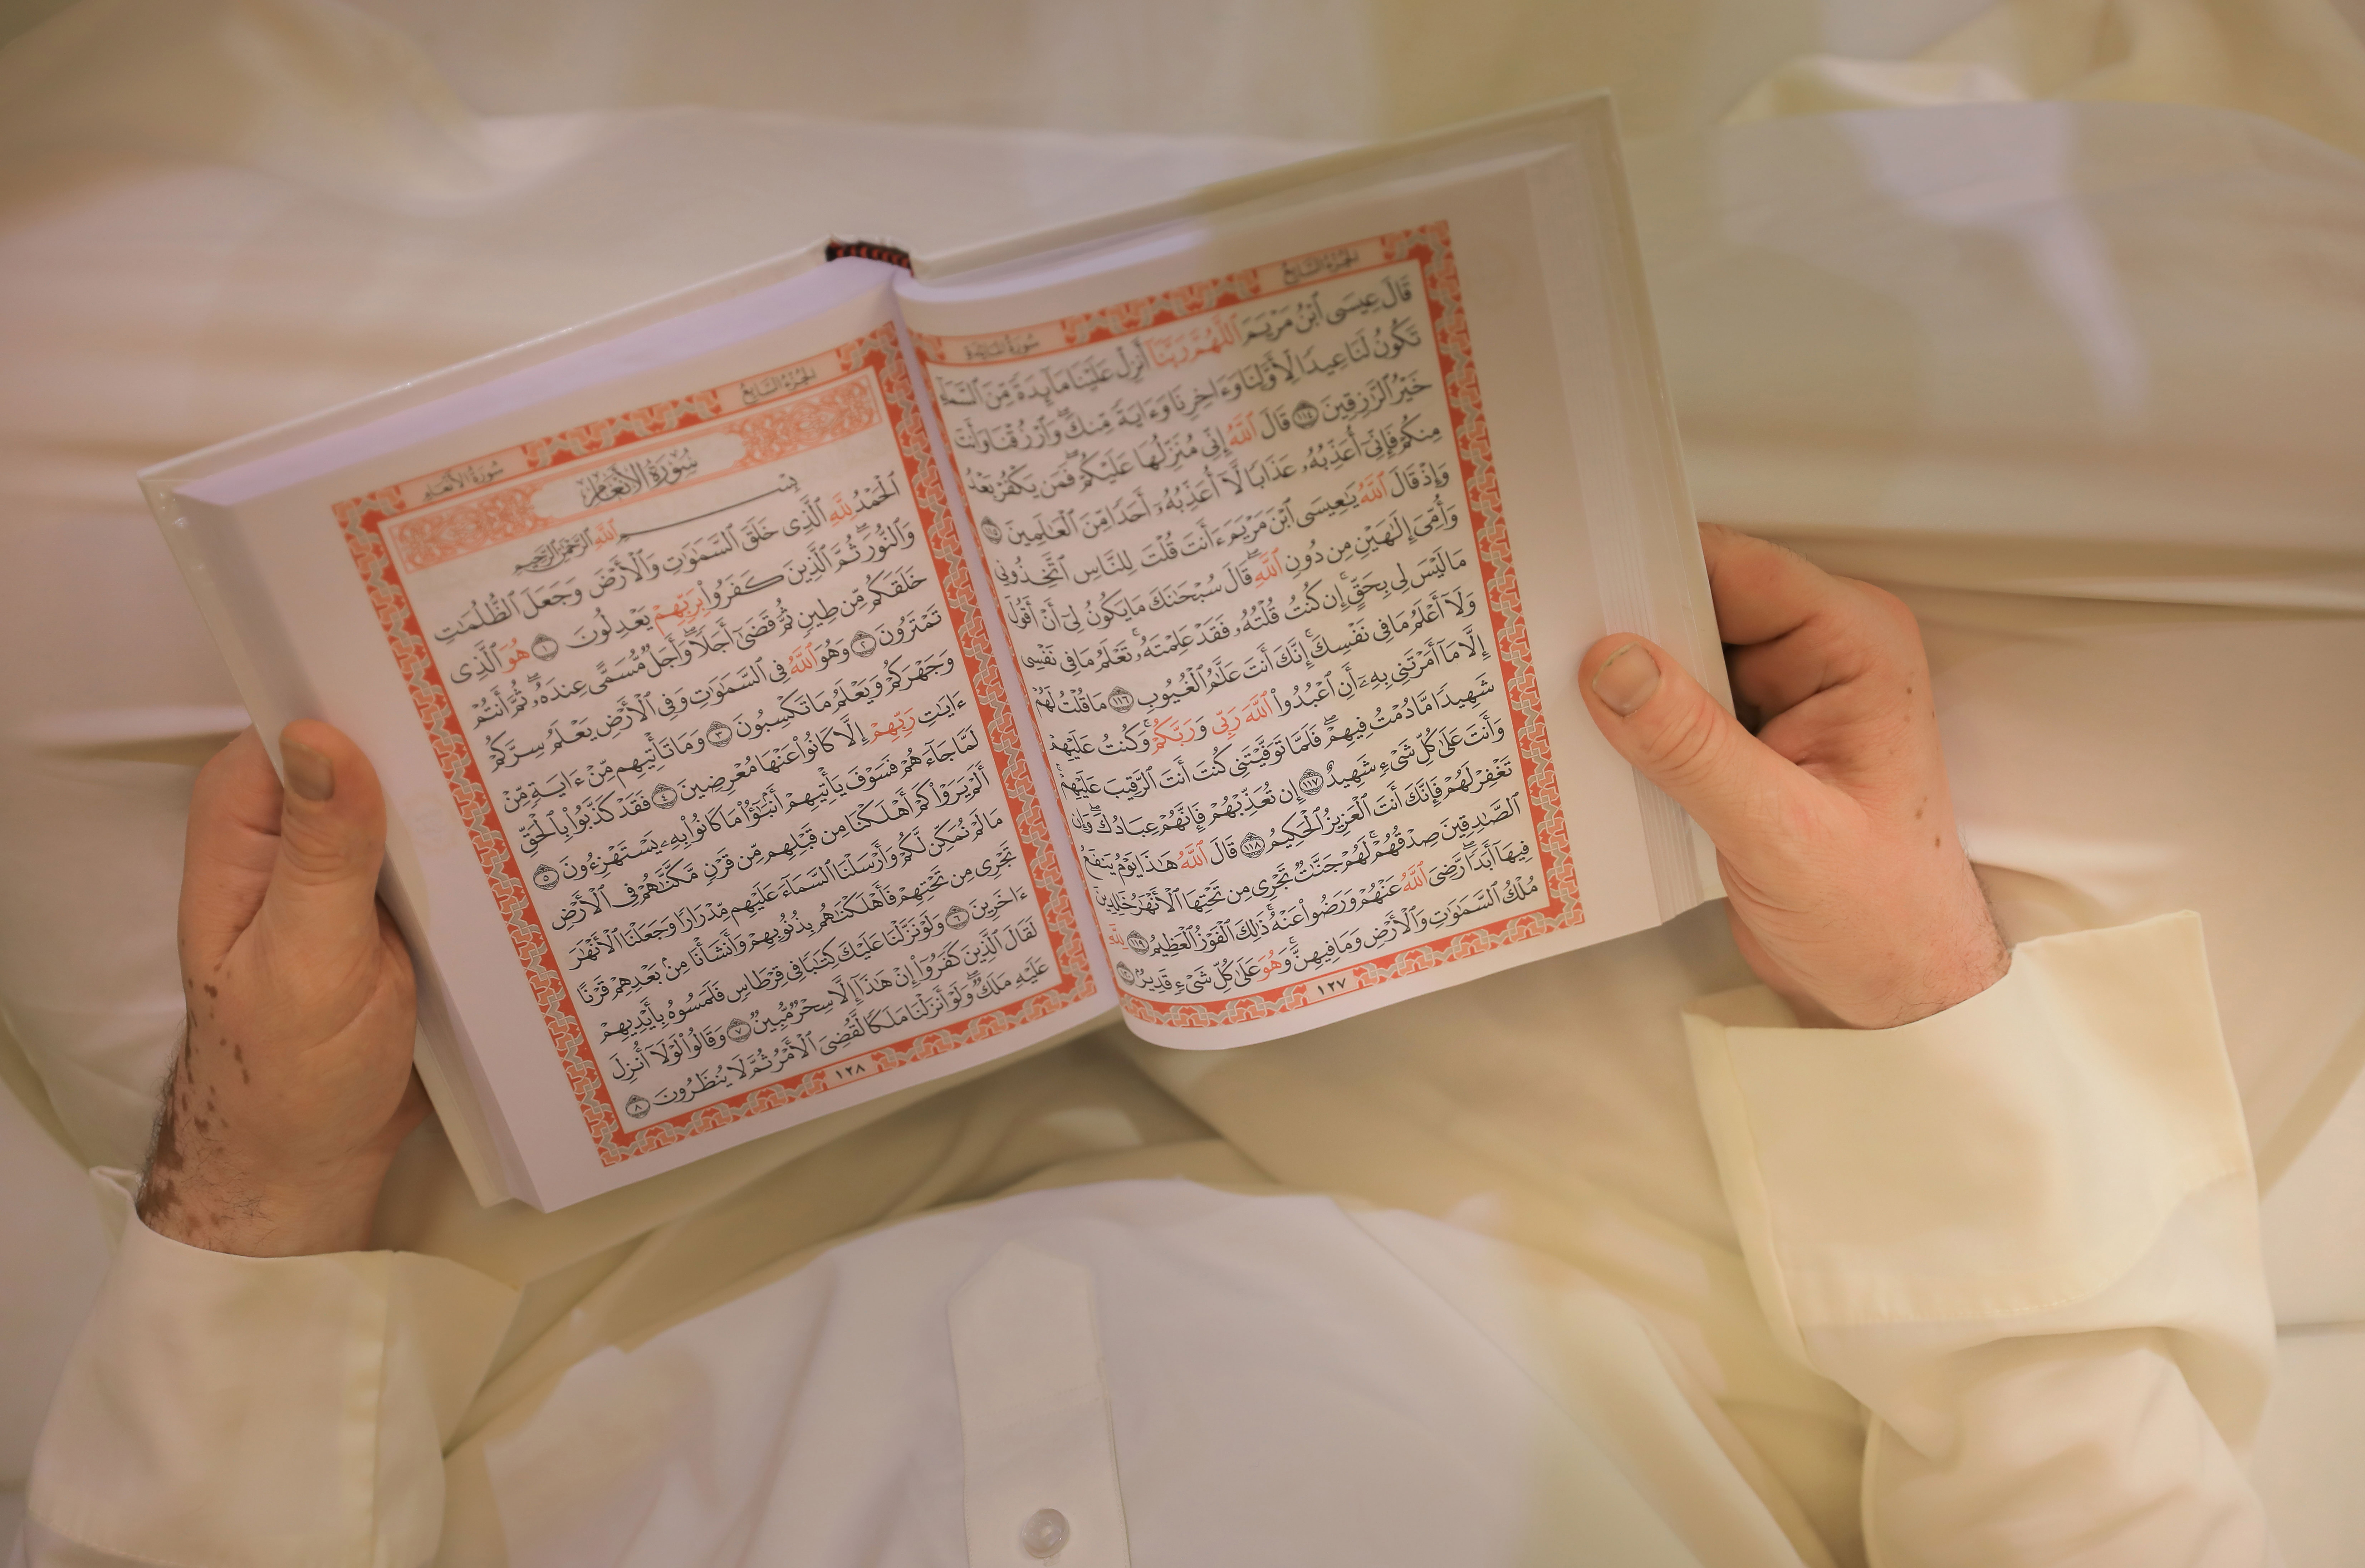 الجُزْءُ السَّابِعُ سُورَةُ المَائِدَةِ
قَالَ عِيسَى ٱبْنُ مَرْيَمَ ٱللَّهُمَّ رَبَّنَآ أَنزِلْ عَلَيْنَا مَآئِدَةً مِّنَ ٱلسَّمَآءِ
تَكُونُ لَنَا عِيدًا لِّأَوَّلِنَا وَءَاخِرِنَا وَءَايَةً مِّنكَ ۖ وَٱرْزُقْنَا وَأَنتَ
خَيْرُ ٱلرَّٰزِقِينَ ١١٤ قَالَ ٱللَّهُ إِنِّى مُنَزِّلُهَا عَلَيْكُمْ ۖ فَمَن يَكْفُرْ بَعْدُ
مِنكُمْ فَإِنِّىٓ أُعَذِّبُهُۥ عَذَابًا لَّآ أُعَذِّبُهُۥٓ أَحَدًا مِّنَ ٱلْعَٰلَمِينَ ١١٥
وَإِذْ قَالَ ٱللَّهُ يَٰعِيسَى ٱبْنَ مَرْيَمَ ءَأَنتَ قُلْتَ لِلنَّاسِ ٱتَّخِذُونِى
وَأُمِّىَ إِلَٰهَيْنِ مِن دُونِ ٱللَّهِ ۖ قَالَ سُبْحَٰنَكَ مَا يَكُونُ لِىٓ أَنْ أَقُولَ
مَا لَيْسَ لِى بِحَقٍّ ۚ إِن كُنتُ قُلْتُهُۥ فَقَدْ عَلِمْتَهُۥ ۚ تَعْلَمُ مَا فِى نَفْسِى
وَلَآ أَعْلَمُ مَا فِى نَفْسِكَ ۚ إِنَّكَ أَنتَ عَلَّٰمُ ٱلْغُيُوبِ ١١٦ مَا قُلْتُ لَهُمْ
إِلَّا مَآ أَمَرْتَنِى بِهِۦٓ أَنِ ٱعْبُدُوا۟ ٱللَّهَ رَبِّى وَرَبَّكُمْ ۚ وَكُنتُ عَلَيْهِمْ
شَهِيدًا مَّا دُمْتُ فِيهِمْ ۖ فَلَمَّا تَوَفَّيْتَنِى كُنتَ أَنتَ ٱلرَّقِيبَ عَلَيْهِمْ ۚ
وَأَنتَ عَلَىٰ كُلِّ شَىْءٍ شَهِيدٌ ١١٧ إِن تُعَذِّبْهُمْ فَإِنَّهُمْ عِبَادُكَ ۖ وَإِن
تَغْفِرْ لَهُمْ فَإِنَّكَ أَنتَ ٱلْعَزِيزُ ٱلْحَكِيمُ ١١٨ قَالَ ٱللَّهُ هَٰذَا يَوْمُ يَنفَعُ
ٱلصَّٰدِقِينَ صِدْقُهُمْ ۚ لَهُمْ جَنَّٰتٌ تَجْرِى مِن تَحْتِهَا ٱلْأَنْهَٰرُ خَٰلِدِينَ
فِيهَآ أَبَدًا ۚ رَّضِىَ ٱللَّهُ عَنْهُمْ وَرَضُوا۟ عَنْهُ ۚ ذَٰلِكَ ٱلْفَوْزُ ٱلْعَظِيمُ ١١٩ لِلَّهِ
مُلْكُ ٱلسَّمَٰوَٰتِ وَٱلْأَرْضِ وَمَا فِيهِنَّ ۚ وَهُوَ عَلَىٰ كُلِّ شَىْءٍ قَدِيرٌۢ ١٢٠
١٢٧
الجُزْءُ السَّابِعُ سُورَةُ الأَنْعَامِ
سُورَةُ الأَنْعَامِ
بِسْمِ ٱللَّهِ ٱلرَّحْمَٰنِ ٱلرَّحِيمِ
ٱلْحَمْدُ لِلَّهِ ٱلَّذِى خَلَقَ ٱلسَّمَٰوَٰتِ وَٱلْأَرْضَ وَجَعَلَ ٱلظُّلُمَٰتِ
وَٱلنُّورَ ۖ ثُمَّ ٱلَّذِينَ كَفَرُوا۟ بِرَبِّهِمْ يَعْدِلُونَ ١ هُوَ ٱلَّذِى
خَلَقَكُم مِّن طِينٍ ثُمَّ قَضَىٰٓ أَجَلًا ۖ وَأَجَلٌ مُّسَمًّى عِندَهُۥ ۖ ثُمَّ أَنتُمْ
تَمْتَرُونَ ٢ وَهُوَ ٱللَّهُ فِى ٱلسَّمَٰوَٰتِ وَفِى ٱلْأَرْضِ ۖ يَعْلَمُ سِرَّكُمْ
وَجَهْرَكُمْ وَيَعْلَمُ مَا تَكْسِبُونَ ٣ وَمَا تَأْتِيهِم مِّنْ ءَايَةٍ مِّنْ
ءَايَٰتِ رَبِّهِمْ إِلَّا كَانُوا۟ عَنْهَا مُعْرِضِينَ ٤ فَقَدْ كَذَّبُوا۟ بِٱلْحَقِّ
لَمَّا جَآءَهُمْ ۖ فَسَوْفَ يَأْتِيهِمْ أَنۢبَٰٓؤُا۟ مَا كَانُوا۟ بِهِۦ يَسْتَهْزِءُونَ ٥
أَلَمْ يَرَوْا۟ كَمْ أَهْلَكْنَا مِن قَبْلِهِم مِّن قَرْنٍ مَّكَّنَّٰهُمْ فِى ٱلْأَرْضِ
مَا لَمْ نُمَكِّن لَّكُمْ وَأَرْسَلْنَا ٱلسَّمَآءَ عَلَيْهِم مِّدْرَارًا وَجَعَلْنَا ٱلْأَنْهَٰرَ
تَجْرِى مِن تَحْتِهِمْ فَأَهْلَكْنَٰهُم بِذُنُوبِهِمْ وَأَنشَأْنَا مِنۢ بَعْدِهِمْ قَرْنًا
ءَاخَرِينَ ٦ وَلَوْ نَزَّلْنَا عَلَيْكَ كِتَٰبًا فِى قِرْطَاسٍ فَلَمَسُوهُ بِأَيْدِيهِمْ
لَقَالَ ٱلَّذِينَ كَفَرُوٓا۟ إِنْ هَٰذَآ إِلَّا سِحْرٌ مُّبِينٌ ٧ وَقَالُوا۟ لَوْلَآ أُنزِلَ
عَلَيْهِ مَلَكٌ ۖ وَلَوْ أَنزَلْنَا مَلَكًا لَّقُضِىَ ٱلْأَمْرُ ثُمَّ لَا يُنظَرُونَ ٨
١٢٨